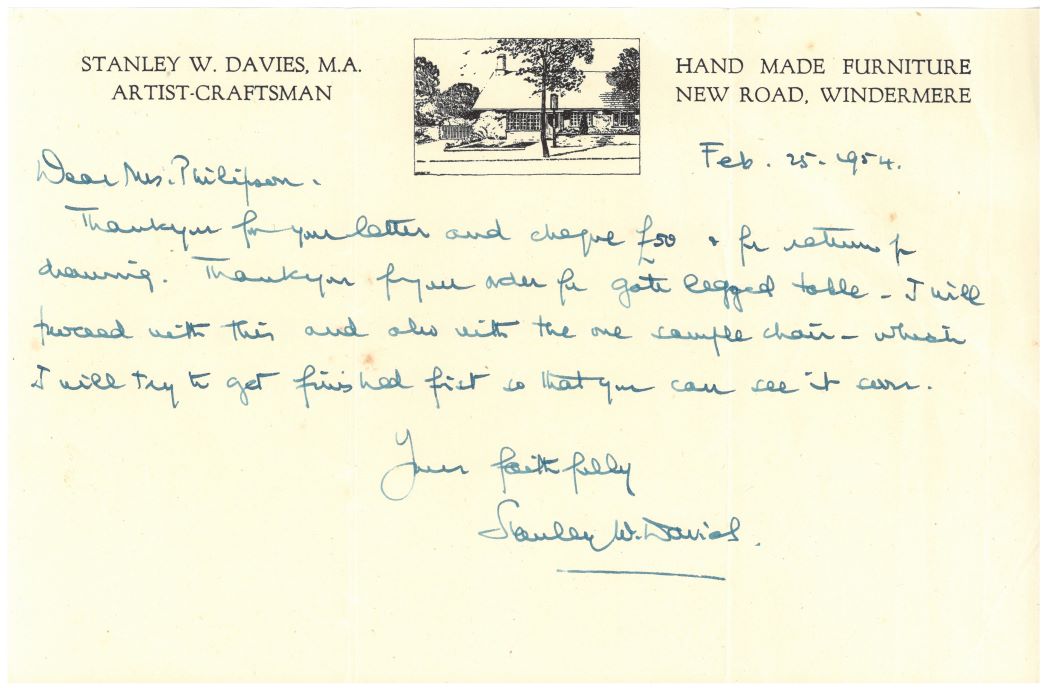 STANLEY W. DAVIES, M.A.
ARTIST-CRAFTSMAN
HAND MADE FURNITURE
NEW ROAD, WINDERMERE
Feb. 25. 1954.
Dear Mrs. Philipson.
Thankyou for your letter and cheque £50 & for return of
drawing. Thankyou for your order for gate legged table - I will
proceed with this and also with the one sample chair - which
I will try to get finished first so that you can see it soon.
Yours faithfully
Stanley W. Davies.